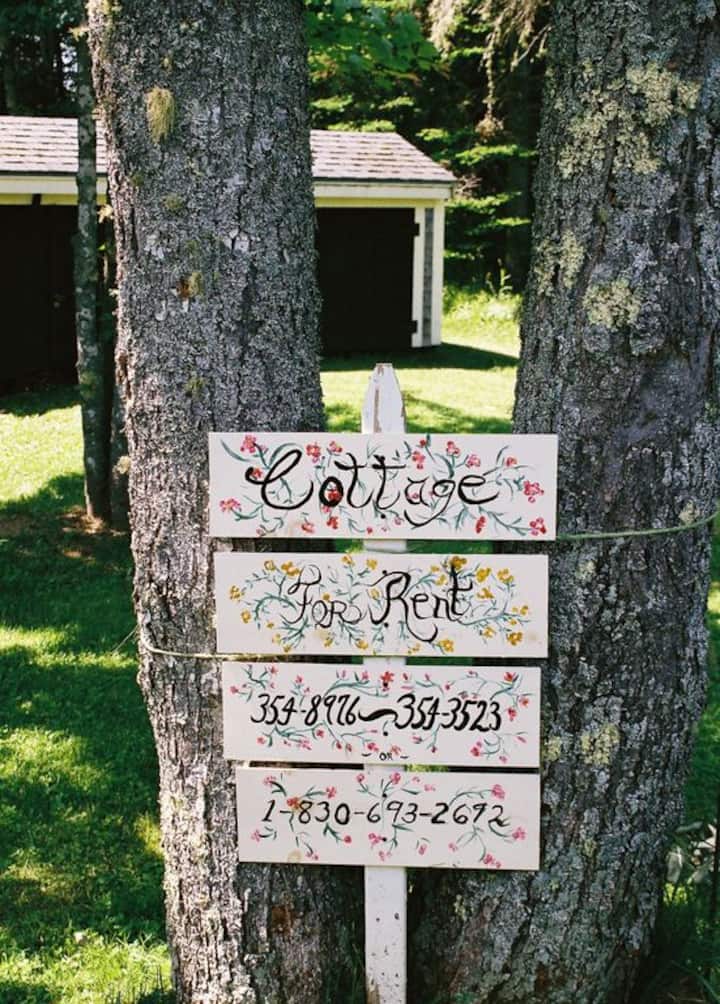 Cottage
For Rent
354-8976~354-3523
- OR -
1-830-693-2692